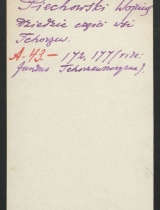 Piechowski Wojciech
Dziedzic części wsi
Tchorzew.
A. 43 — 172, 177 (vide:
fundus Tchorzewskiego).